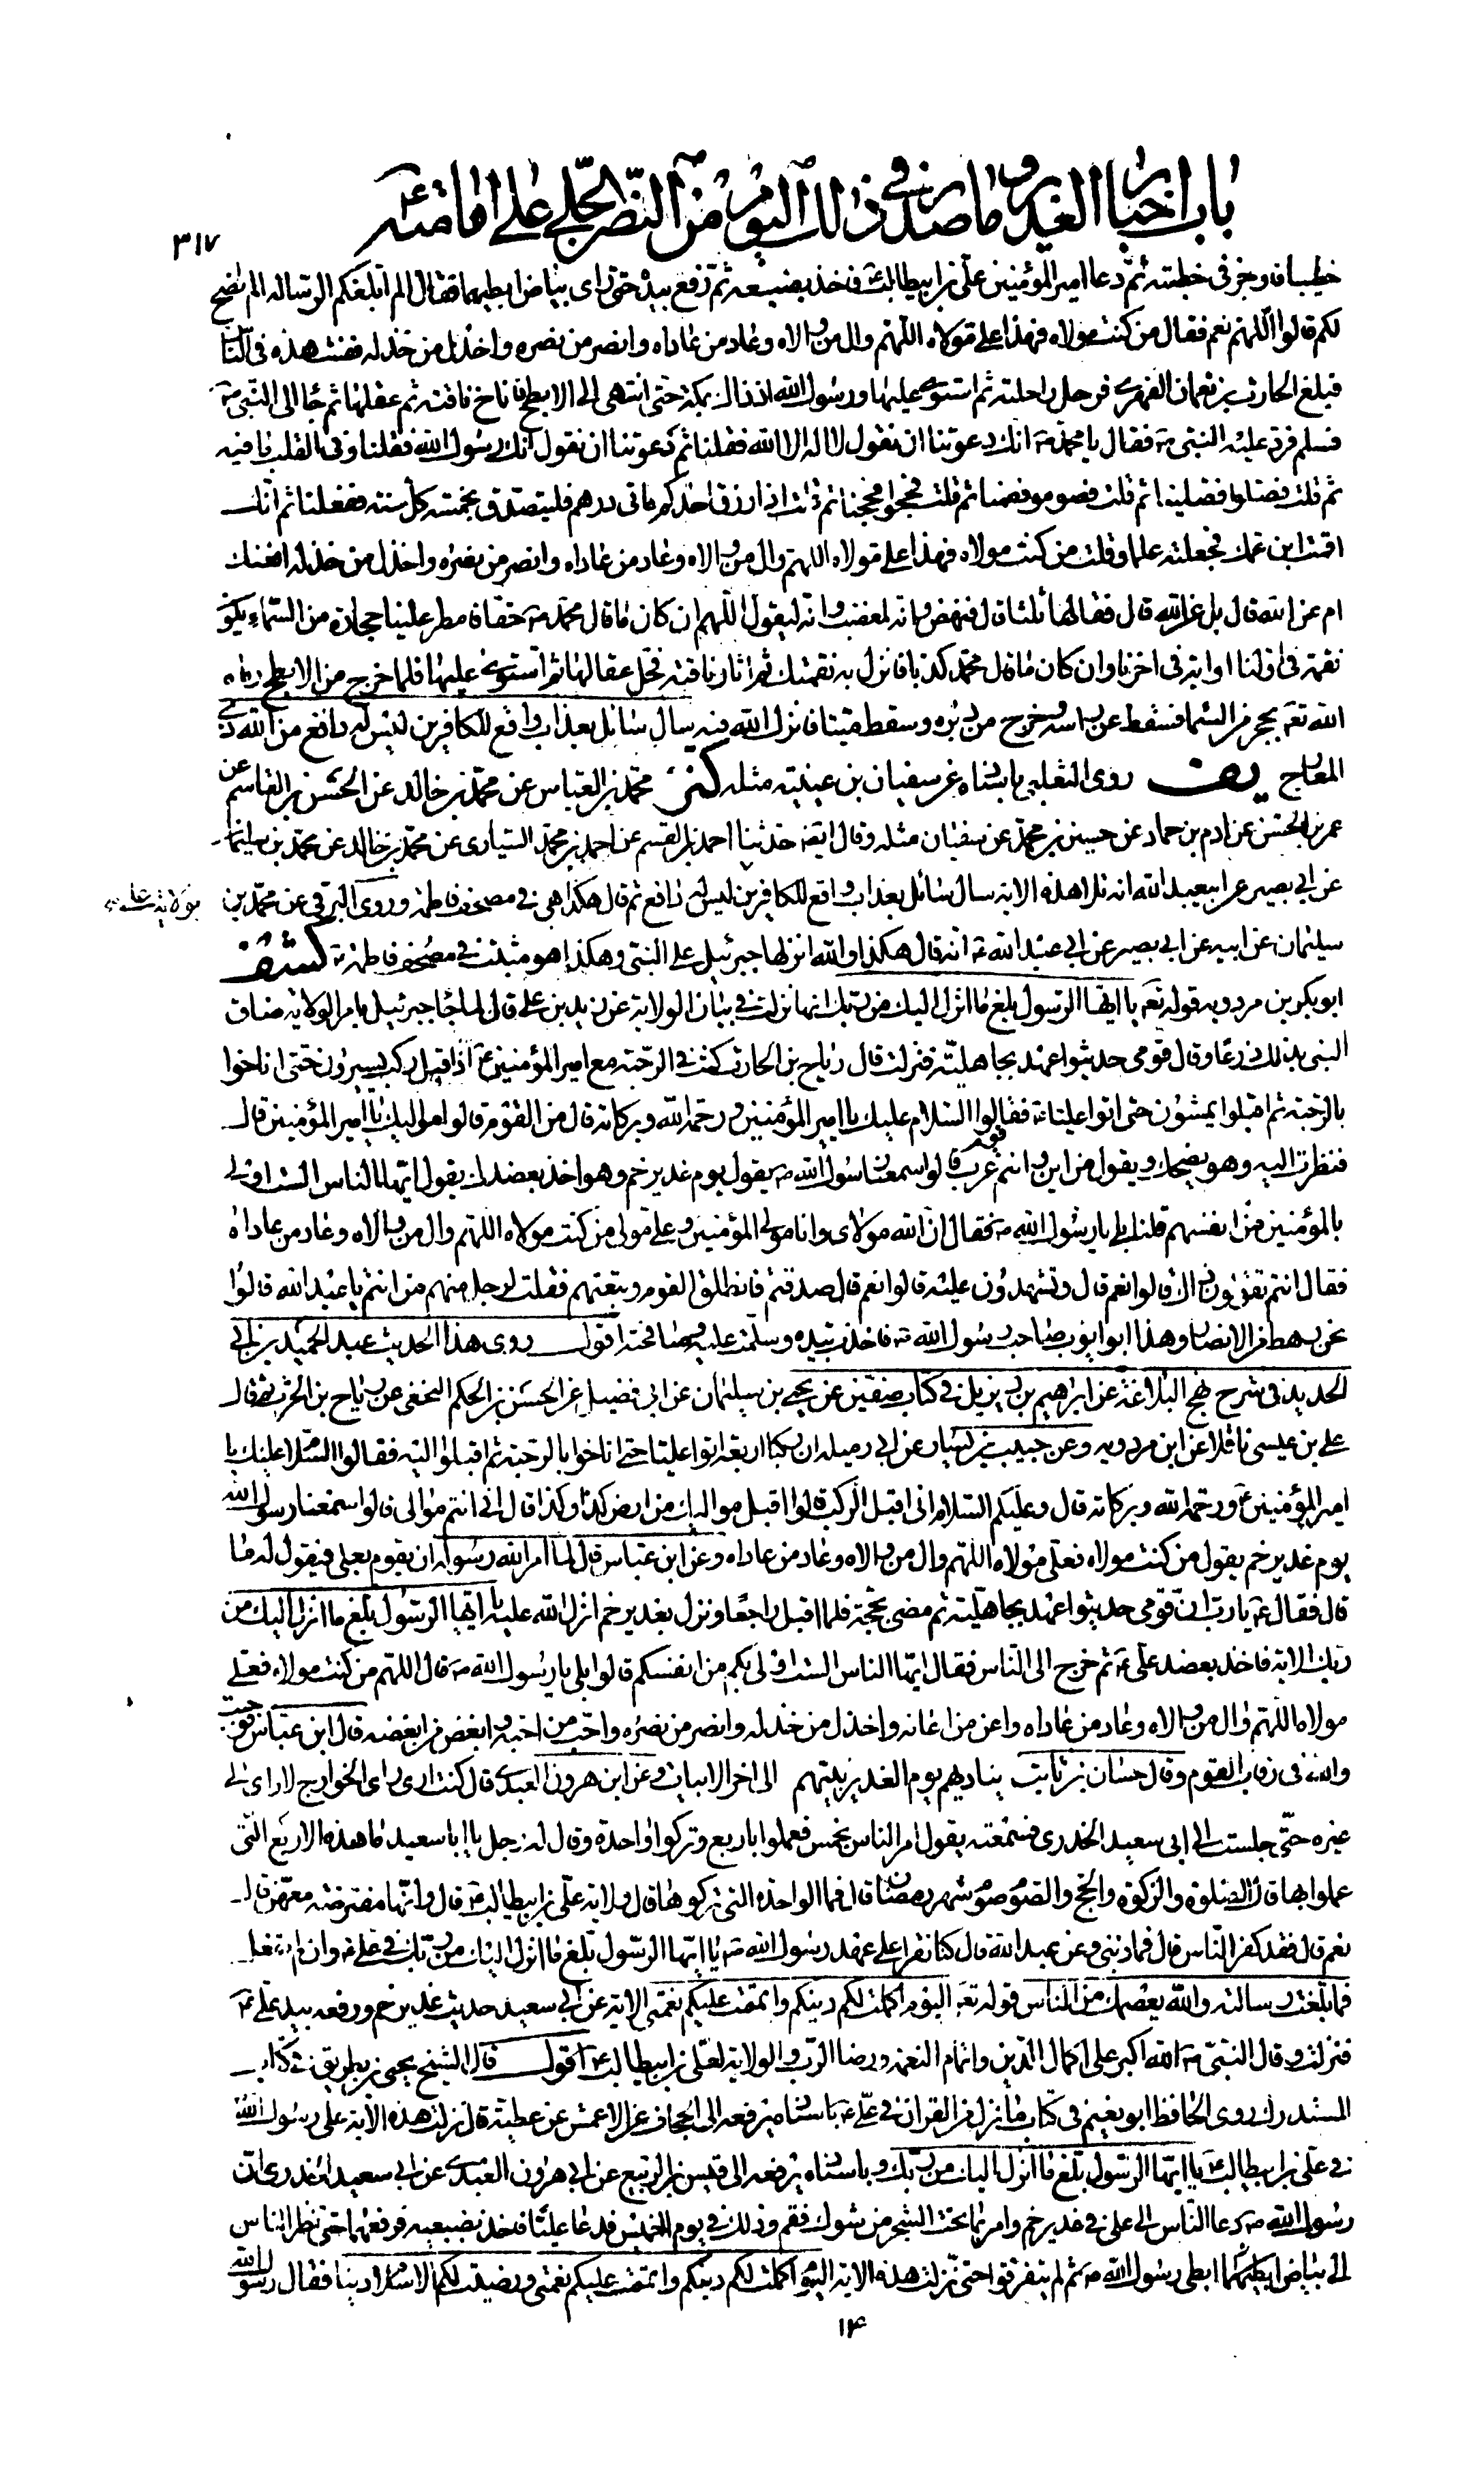 باب اخبار الغدير وما صدر في ذلك اليوم من النص الجلي على امامته
٣١٧
خطيبا فاوجز في خطبته ثم دعا امير المؤمنين علي بن ابيطالب ع فاخذ بضبعه ثم رفع بيده حتى رأى بياض ابطيهما فقال الم ابلغكم الرسالة الم انصح
لكم قالوا اللهم نعم فقال من كنت مولاه فهذا علي مولاه اللهم وال من والاه وعاد من عاداه وانصر من نصره واخذل من خذله ففشت هذه في الناس
فبلغ الحارث بن نعمان الفهري فرحل راحلته ثم استوى عليها ورسول الله اذ ذاك بمكة حتى انتهى الى الابطح فاناخ ناقته ثم عقلها ثم جاء الى النبي ص
فسلم فرد عليه النبي ص فقال يا محمد ص انك دعوتنا ان نقول لا اله الا الله فقلنا ثم دعوتنا ان نقول انك رسول الله فقلنا وفي القلب ما فيه
ثم قلت فصلوا فصلينا ثم قلت فصوموا فصمنا ثم قلت فحجوا فحججنا ثم قلت اذا رزق احدكم مأتي درهم فليتصدق بخمسة كل سنة ففعلنا ثم انك
اقمت ابن عمك فجعلته علما وقلت من كنت مولاه فهذا علي مولاه اللهم وال من والاه وعاد من عاداه وانصر من نصره واخذل من خذله افعنك
ام عن الله قال بل عن الله قال فقالها ثلثا قال فنهض وانه لمغضب وانه ليقول اللهم ان كان ما قال محمد ص حقا فامطر علينا حجارة من السماء يكون
نقمة في اولنا واية في اخرنا وان كان ما قال محمد كذبا فانزل به نقمتك ثم اثار ناقته فحل عقالها ثم استوى عليها فلما خرج من الابطح رماه
الله تعالى بحجر من السماء فسقط على راسه وخرج من دبره وسقط ميتا فانزل الله فيه سال سائل بعذاب واقع للكافرين ليس له دافع من الله ذي
المعارج يف روى الثعلبي باسناده عن سفيان بن عيينة مثله كنز محمد بن العباس عن محمد بن خالد عن الحسن بن القاسم عن
عمر بن الحسن عن ادم بن حماد عن حسين بن محمد عن سفيان مثله وقال ايضا حدثنا احمد بن القسم عن احمد بن محمد السياري عن محمد بن خالد عن محمد بن سليمان
عن ابي بصير عن ابيعبد الله انه تلا هذه الاية سال سائل بعذاب واقع للكافرين ليس له دافع ثم قال هكذا هي في مصحف فاطمة وروى البرقي عن محمد بن
بولاية علي
سليمان عن ابيه عن ابي بصير عن ابي عبد الله ع انه قال هكذا والله انزلها جبرئيل على النبي وهكذا هو مثبت في مصحف فاطمة ع كشف
ابو بكر بن مردويه قوله تعالى يا ايها الرسول بلغ ما انزل اليك من ربك انها نزلت في بيان الولاية عن زيد بن علي قال لما جاء جبرئيل بامر الولاية ضاق
النبي بذلك ذرعا وقال قومي حديثوا عهد بجاهلية فنزلت قال رياح بن الحارث كنت في الرحبة مع امير المؤمنين ع اذ اقبل ركب يسيرون حتى اناخوا
بالرحبة ثم اقبلوا يمشون حتى اتوا عليا ع فقالوا السلام عليك يا امير المؤمنين ورحمة الله وبركاته قال من القوم قالوا مواليك يا امير المؤمنين قال
فنظرت اليه وهو يضحك ويقول من اين وانتم قوم عرب قالوا سمعنا رسول الله ص يقول يوم غدير خم وهو اخذ بعضدك يقول ايها الناس الست اولى
بالمؤمنين من انفسهم قلنا بلى يا رسول الله ص فقال ان الله مولاي وانا مولى المؤمنين وعلي مولى من كنت مولاه اللهم وال من والاه وعاد من عاداه
فقال انتم تقولون ذلك قالوا نعم قال وتشهدون عليه قالوا نعم قال صدقتم فانطلق القوم وتبعتهم فقلت لرجل منهم من انتم يا عبد الله قالوا
نحن رهط من الانصار وهذا ابو ايوب صاحب رسول الله ص فاخذت بيده وسلمت عليه وصافحته اقول روى هذا الحديث عبد الحميد بن ابي
الحديد في شرح نهج البلاغة عن ابراهيم بن ديزيل في كتاب صفين عن يحيى بن سليمان عن ابي فضيل عن الحسن بن الحكم النخعي عن رياح بن الحرث ثم قال
علي بن عيسى ناقلا عن ابن مردويه وعن حبيب بن يسار عن ابي رميلة ان ركبا اربعة اتوا عليا حتى اناخوا بالرحبة ثم اقبلوا اليه فقالوا السلام عليك يا
امير المؤمنين ع ورحمة الله وبركاته قال وعليكم السلام انى اقبل الركب قالوا اقبل مواليك من ارض كذا وكذا قال انى انتم موالي قالوا سمعنا رسول الله
يوم غدير خم يقول من كنت مولاه فعلي مولاه اللهم وال من والاه وعاد من عاداه وعن ابن عباس قال لما امر الله رسوله ان يقوم بعلي فيقول له ما
قال فقال ع يا رب ان قومي حديثوا عهد بجاهلية ثم مضى بحجه فلما اقبل راجعا ونزل بغدير خم انزل الله عليه يا ايها الرسول بلغ ما انزل اليك من
ربك الاية فاخذ بعضد علي ع ثم خرج الى الناس فقال ايها الناس الست اولى بكم من انفسكم قالوا بلى يا رسول الله ص قال اللهم من كنت مولاه فعلي
مولاه اللهم وال من والاه وعاد من عاداه واعن من اعانه واخذل من خذله وانصر من نصره واحب من احبه وابغض من ابغضه قال ابن عباس فوجبت
والله في رقاب القوم وقال حسان بن ثابت يناديهم يوم الغدير نبيهم الى اخر الابيات وعن ابن هرون العبدي قال كنت ارى راى الخوارج لا راى لي
غيره حتى جلست الى ابي سعيد الخدري فسمعته يقول امر الناس بخمس فعملوا باربع وتركوا واحدة وقال له رجل يا ابا سعيد ما هذه الاربع التي
عملوا بها قال الصلوة والزكوة والحج والصوم صوم شهر رمضان قال فما الواحدة التي تركوها قال ولاية علي بن ابيطالب ع قال وانها مفترضة معهن قال
نعم قال فقد كفر الناس قال فما ذنبي وعن عبد الله قال كنا نقرا على عهد رسول الله ص يا ايها الرسول بلغ ما انزل اليك من ربك في علي ع وان لم تفعل
فما بلغت رسالته والله يعصمك من الناس قوله تعالى اليوم اكملت لكم دينكم واتممت عليكم نعمتي الاية عن ابي سعيد حديث غدير خم ورفعه بيد علي ع
فنزلت وقال النبي ص الله اكبر على اكمال الدين واتمام النعمة ورضا الرب والولاية لعلي بن ابيطالب ع اقول قال الشيخ يحيى بن بطريق في كتاب
المستدرك روى الحافظ ابو نعيم في كتاب ما نزل من القران في علي ع باسناده يرفعه الى الجحاف عن الاعمش عن عطية قال نزلت هذه الاية على رسول الله
في علي بن ابيطالب ع يا ايها الرسول بلغ ما انزل اليك من ربك وباسناده يرفعه الى قيس بن الربيع عن ابي هرون العبدي عن ابي سعيد الخدري ان
رسول الله ص دعا الناس الى علي في غدير خم وامر بما تحت الشجر من شوك فقم وذلك في يوم الخميس فدعا عليا فاخذ بضبعيه فرفعهما حتى نظر الناس
الى بياض ابطي رسول الله ص ثم لم يتفرقوا حتى نزلت هذه الاية اليوم اكملت لكم دينكم واتممت عليكم نعمتي ورضيت لكم الاسلام دينا فقال رسول الله
١٤